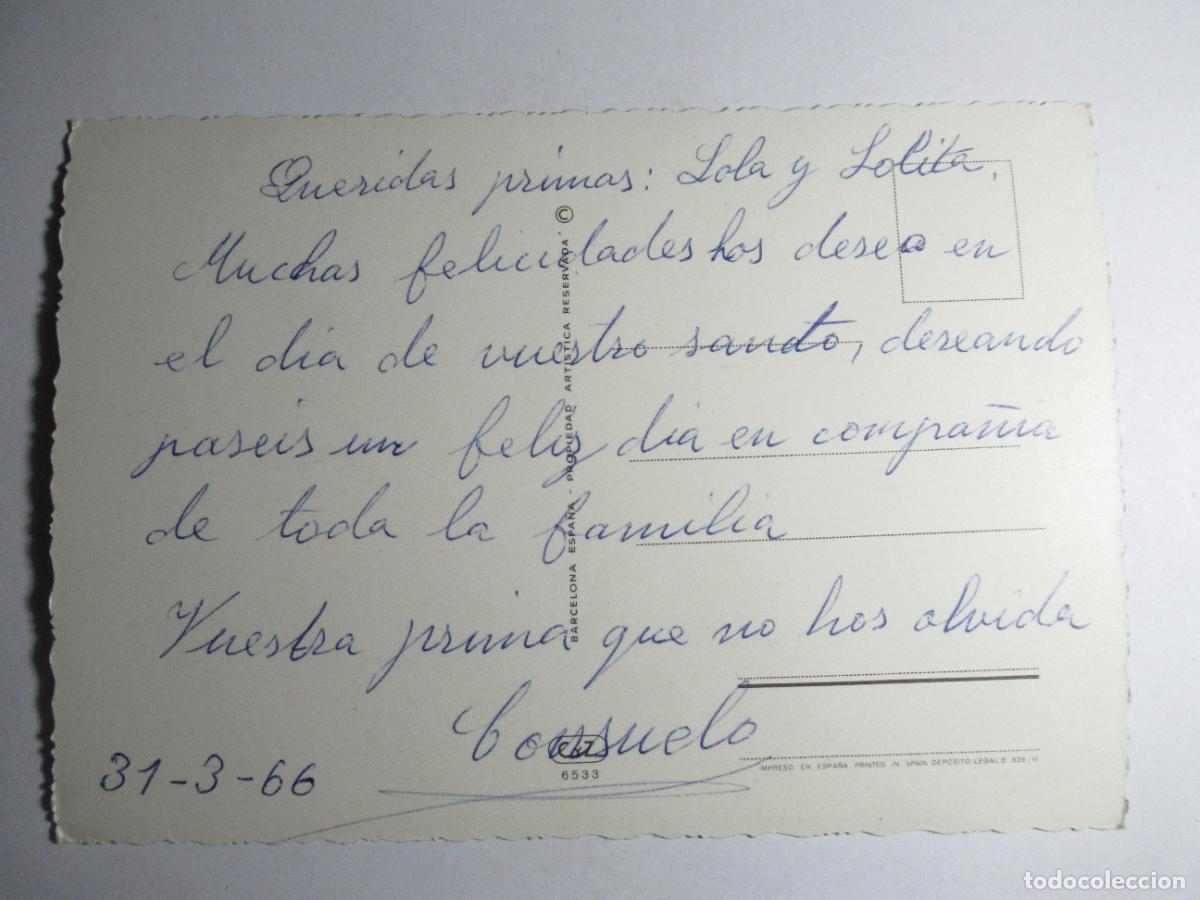 Queridas primas: Lola y Lolita,
Muchas felicidades hos deseo en
el dia de vuestro santo, deseando
paseis un feliz dia en compañia
de toda la familia
Vuestra prima que no hos olvida
Consuelo
31-3-66
BARCELONA ESPAÑA - PROPIEDAD ARTISTICA RESERVADA ©
CyZ
6533
IMPRESO EN ESPAÑA PRINTED IN SPAIN DEPOSITO LEGAL B. 828 VI
todocoleccion